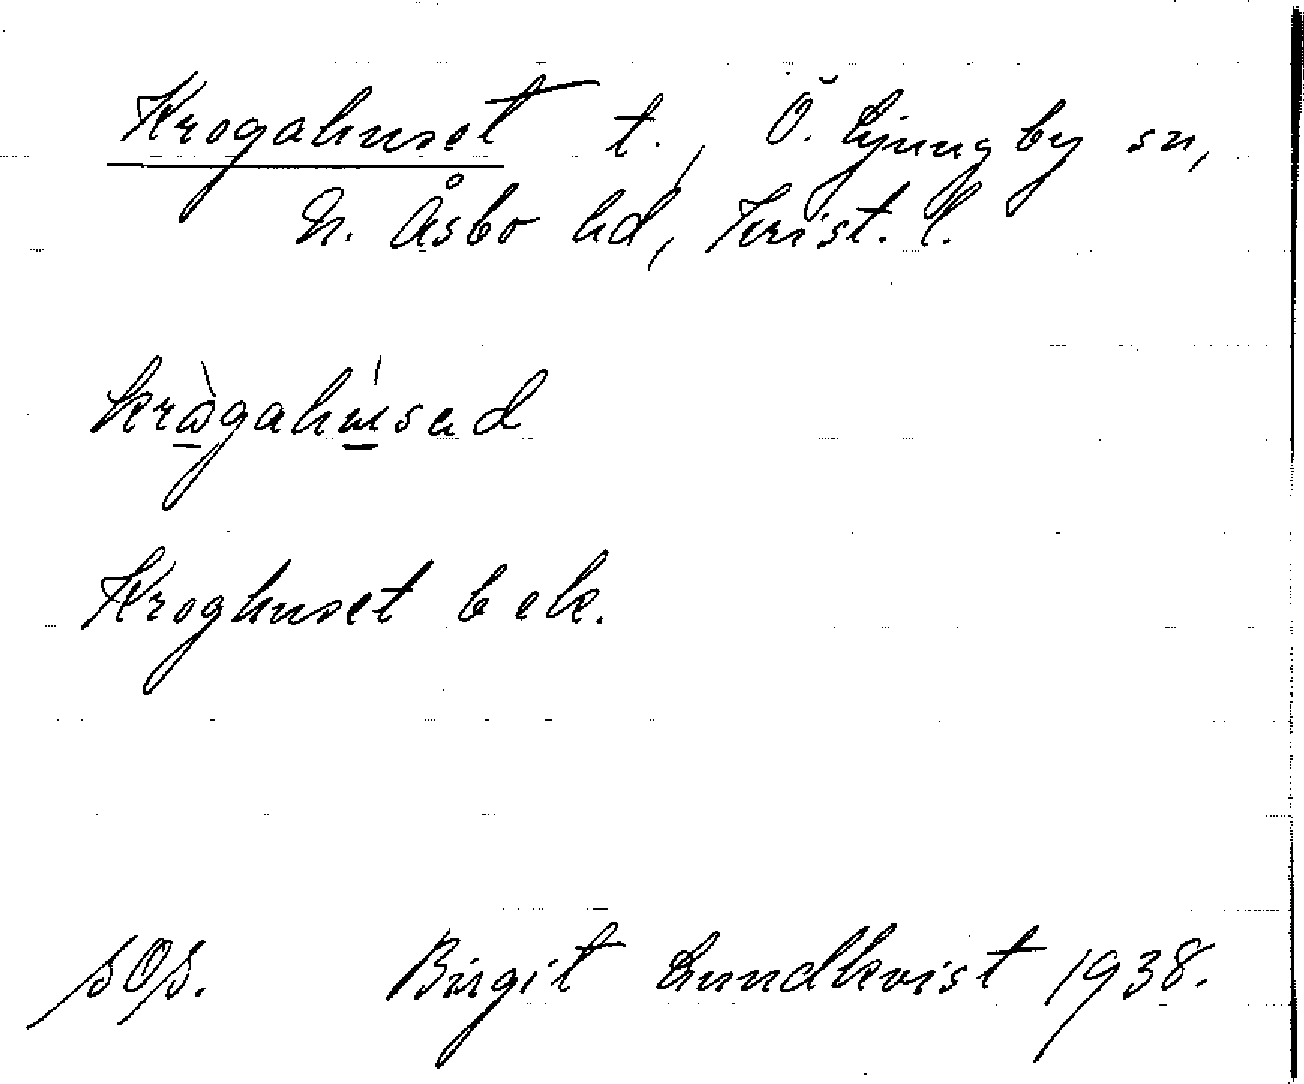 Krogahuset t., Ö. Ljungby sn,
N. Åsbo hd, Krist. l.
kràgahúsad
Kroghuset bek.
SOS. Birgit Lundkvist 1938.